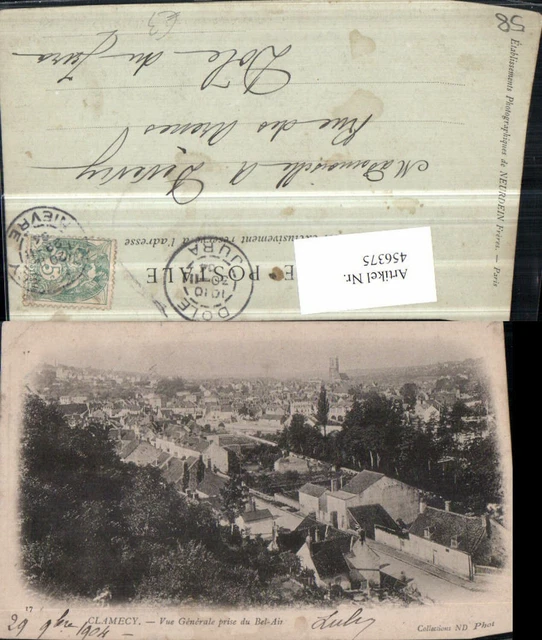 58
63
Établissements Photographiques de NEURDEIN Frères. — Paris
exclusivement réservé à l'adresse
POSTALE
Mademoiselle A
Rue des Arènes
Dole du Jura
NIÈVRE
DOLE
JURA
Artikel Nr.
456375
17
CLAMECY. — Vue Générale prise du Bel-Air
29 9bre 1904
Collections ND Phot